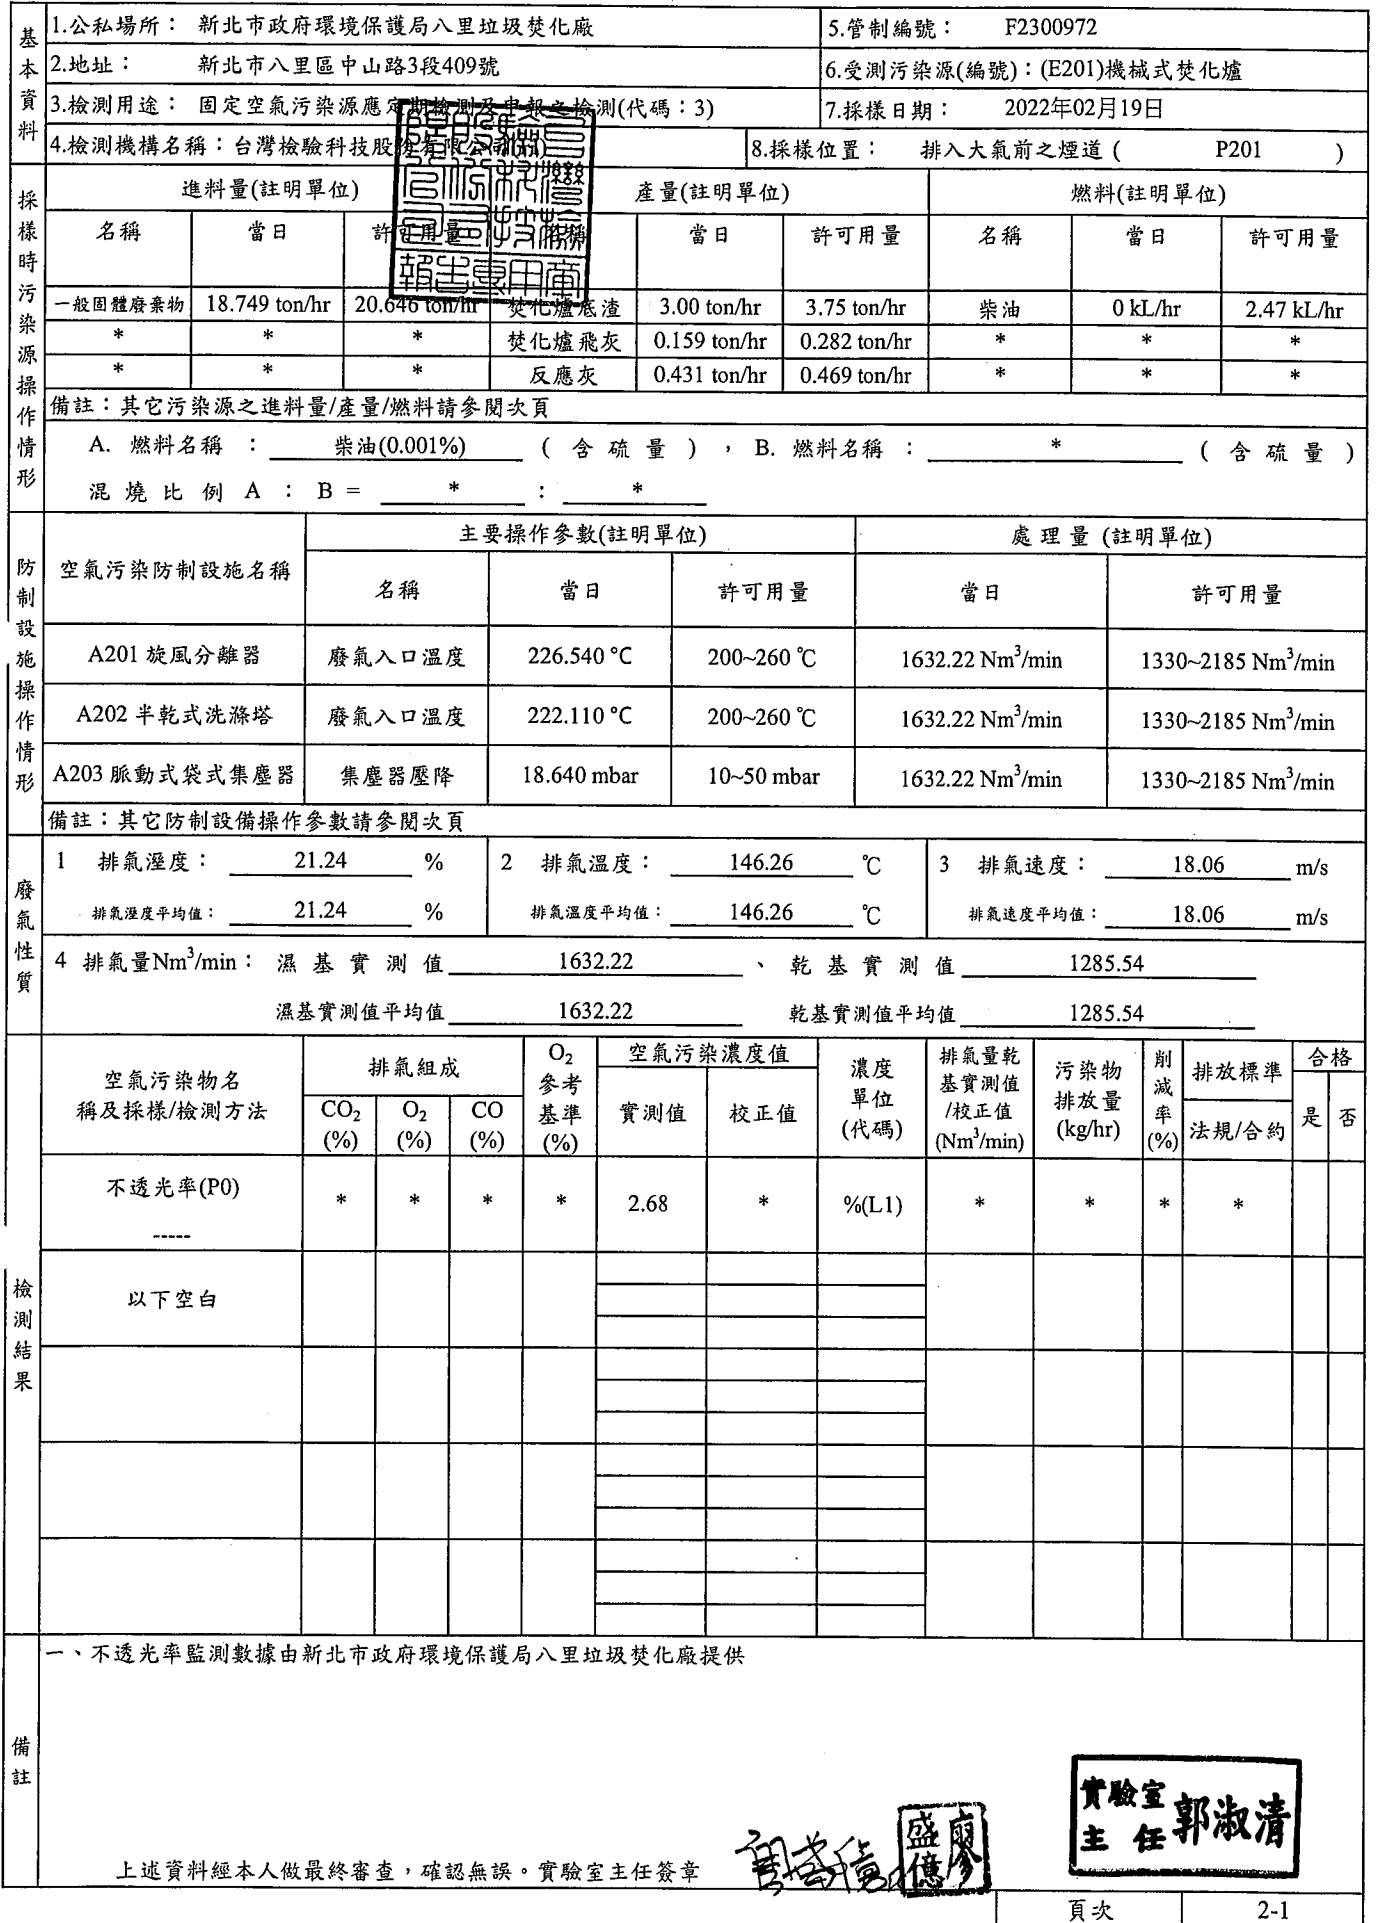 基本資料
1.公私場所： 新北市政府環境保護局八里垃圾焚化廠 5.管制編號： F2300972
2.地址： 新北市八里區中山路3段409號 6.受測污染源(編號)：(E201)機械式焚化爐
3.檢測用途： 固定空氣污染源應定期檢測及申報之檢測(代碼：3) 7.採樣日期： 2022年02月19日
4.檢測機構名稱：台灣檢驗科技股份有限公司 8.採樣位置： 排入大氣前之煙道 ( P201 )
採樣時污染源操作情形
進料量(註明單位) 產量(註明單位) 燃料(註明單位)
名稱 當日 許可用量 名稱 當日 許可用量 名稱 當日 許可用量
一般固體廢棄物 18.749 ton/hr 20.646 ton/hr 焚化爐底渣 3.00 ton/hr 3.75 ton/hr 柴油 0 kL/hr 2.47 kL/hr
* * * 焚化爐飛灰 0.159 ton/hr 0.282 ton/hr * * *
* * * 反應灰 0.431 ton/hr 0.469 ton/hr * * *
備註：其它污染源之進料量/產量/燃料請參閱次頁
A. 燃料名稱 ： 柴油(0.001%) ( 含 硫 量 ) ，B. 燃料名稱 ： * ( 含 硫 量 )
混 燒 比 例 A ： B = * ： *
防制設施操作情形
空氣污染防制設施名稱 主要操作參數(註明單位) 處理量 (註明單位)
名稱 當日 許可用量 當日 許可用量
A201 旋風分離器 廢氣入口溫度 226.540 ℃ 200~260 ℃ 1632.22 Nm³/min 1330~2185 Nm³/min
A202 半乾式洗滌塔 廢氣入口溫度 222.110 ℃ 200~260 ℃ 1632.22 Nm³/min 1330~2185 Nm³/min
A203 脈動式袋式集塵器 集塵器壓降 18.640 mbar 10~50 mbar 1632.22 Nm³/min 1330~2185 Nm³/min
備註：其它防制設備操作參數請參閱次頁
廢氣性質
1 排氣溼度： 21.24 % 2 排氣溫度： 146.26 ℃ 3 排氣速度： 18.06 m/s
排氣溼度平均值： 21.24 % 排氣溫度平均值： 146.26 ℃ 排氣速度平均值： 18.06 m/s
4 排氣量Nm³/min： 濕 基 實 測 值 1632.22 、 乾 基 實 測 值 1285.54
濕基實測值平均值 1632.22 乾基實測值平均值 1285.54
檢測結果
空氣污染物名
稱及採樣/檢測方法
排氣組成
CO₂ (%) O₂ (%) CO (%)
O₂ 參考基準 (%)
空氣污染濃度值
實測值 校正值
濃度單位(代碼)
排氣量乾基實測值/校正值(Nm³/min)
污染物排放量(kg/hr)
削減率(%)
排放標準
法規/合約
合格
是 否
不透光率(P0) * * * * 2.68 * %(L1) * * * *
-----
以下空白
備註
一、不透光率監測數據由新北市政府環境保護局八里垃圾焚化廠提供
實驗室主任 郭淑清
廖盛億
上述資料經本人做最終審查，確認無誤。實驗室主任簽章
頁次 2-1